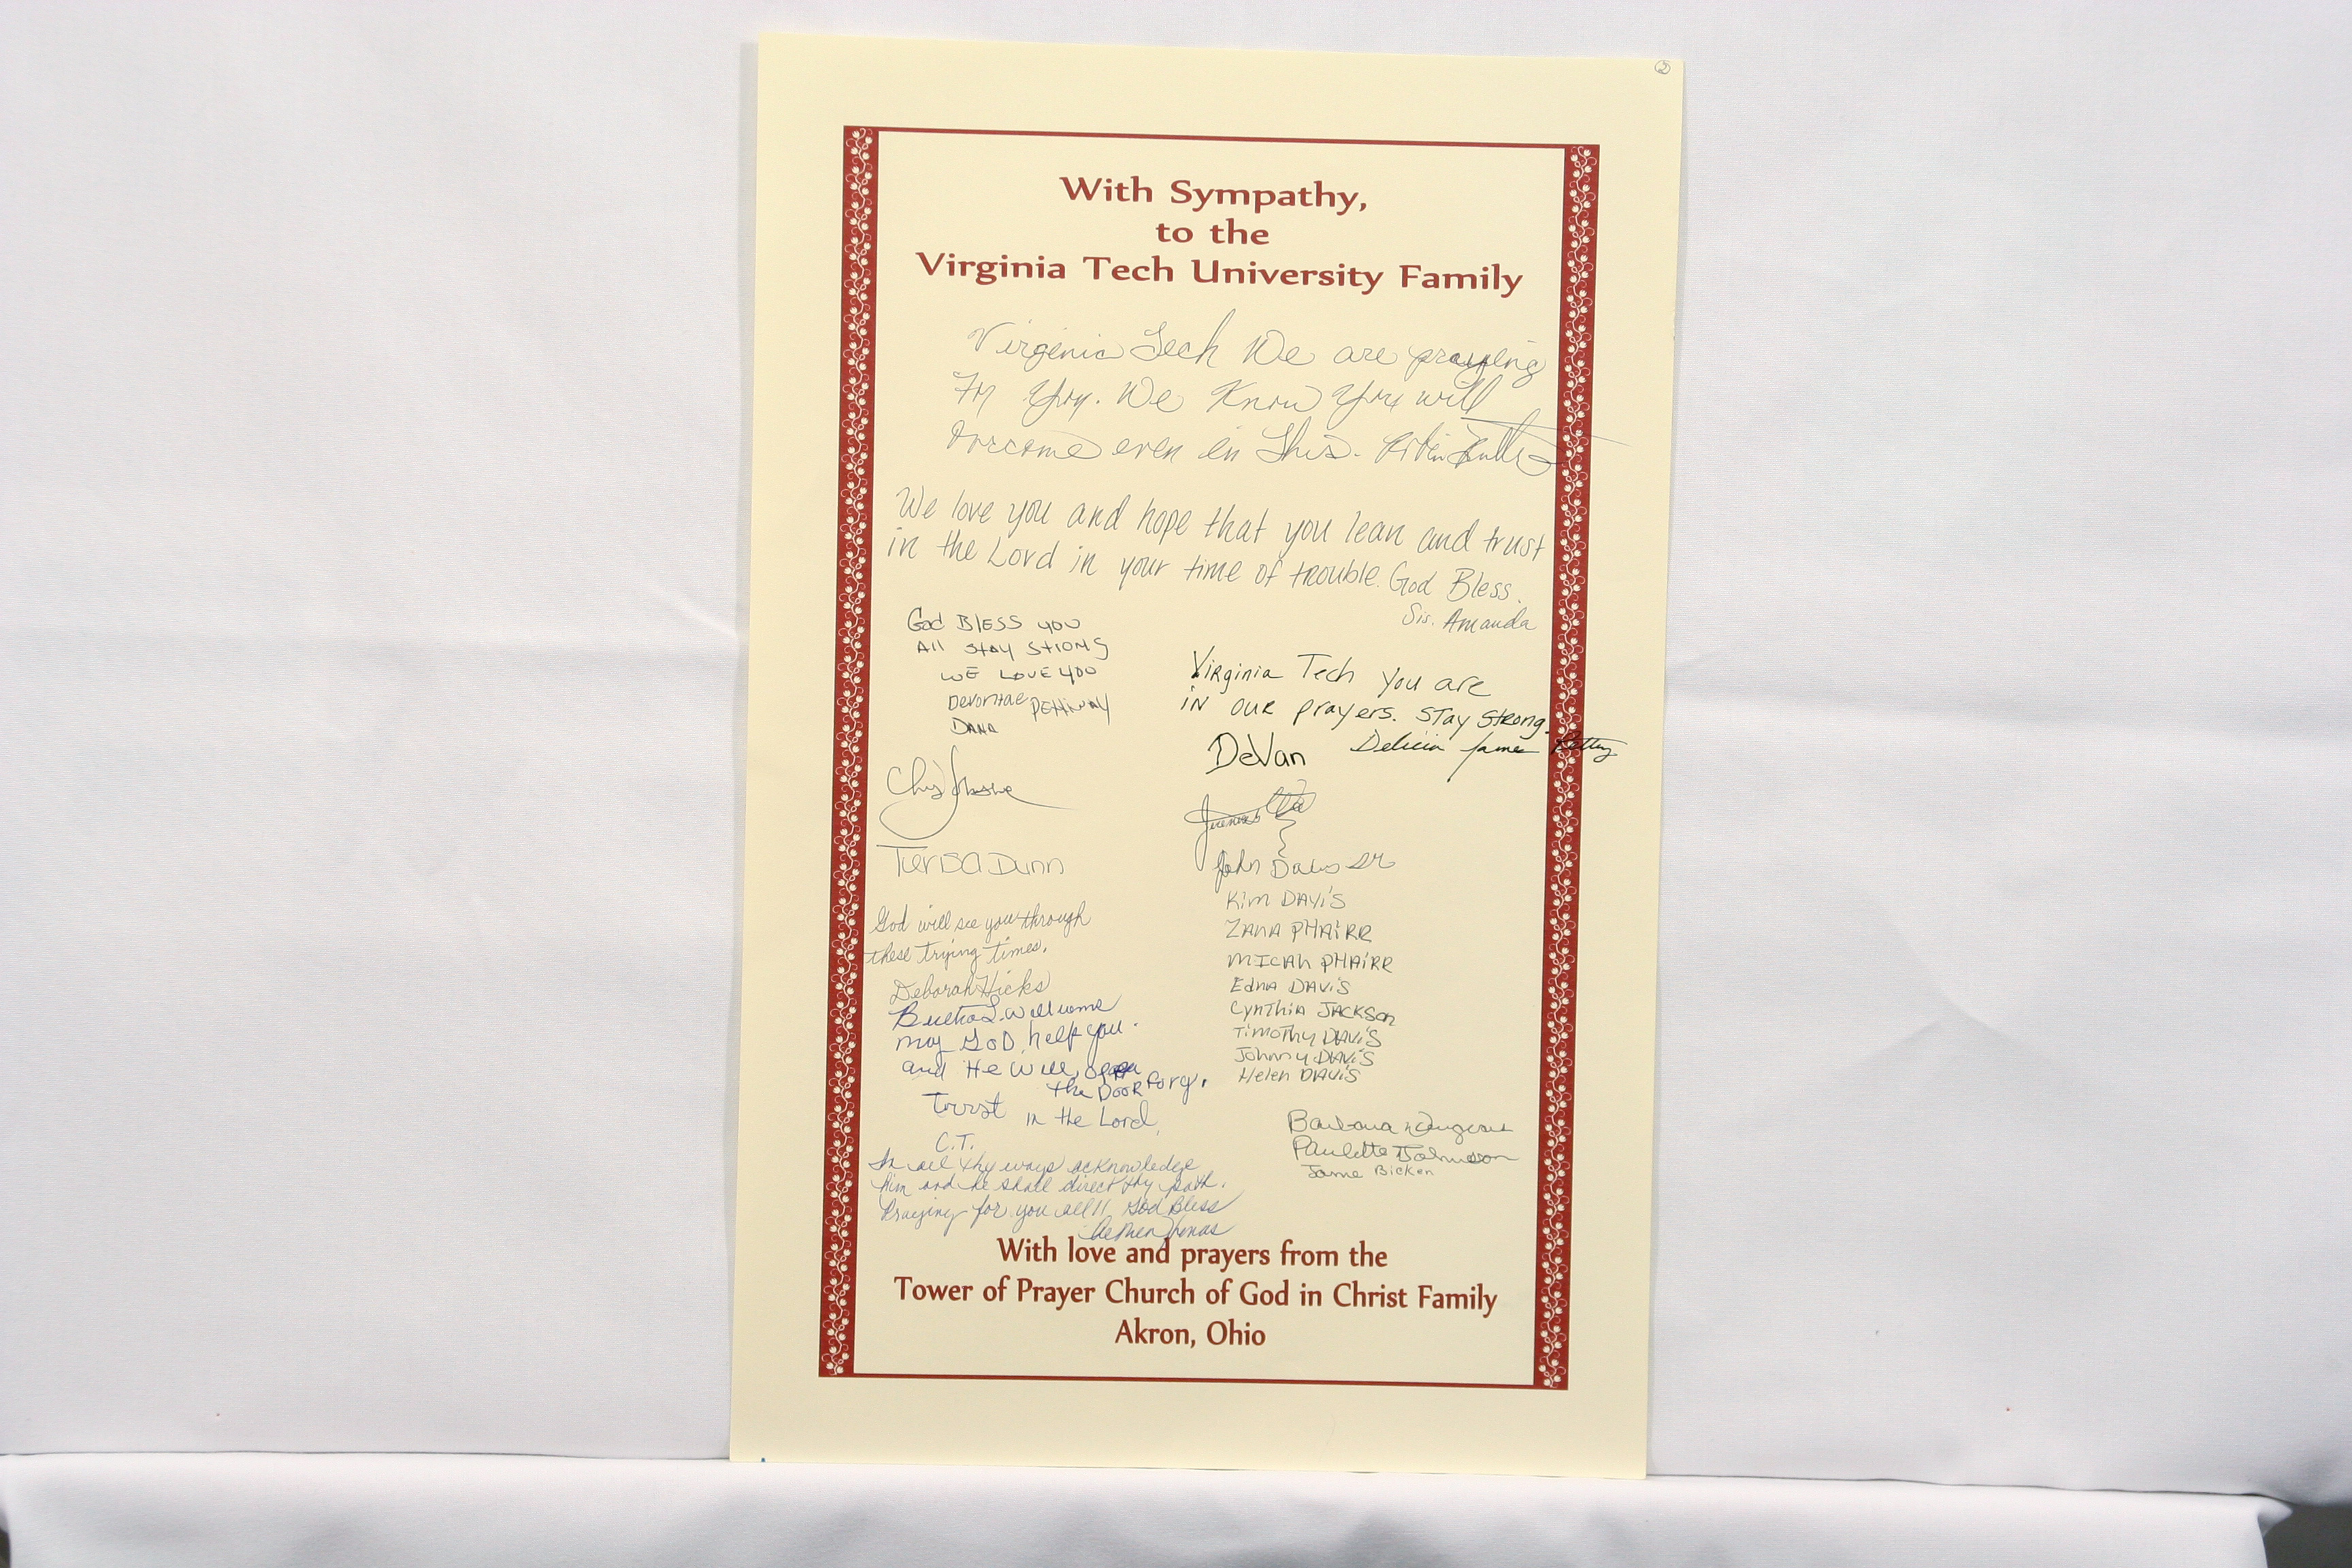 2
With Sympathy,
to the
Virginia Tech University Family
Virginia Tech We are praying
For You. We Know You will
overcome even in This.
We love you and hope that you lean and trust
in the Lord in your time of trouble. God Bless.
Sis. Amanda
God BLESS you
All stay strong
WE LOVE YOU
Pettiway
Dana
Virginia Tech you are
in our prayers. Stay strong.
Delicia
DeVan
Terisa Dunn
John Davis Sr
Kim DAViS
ZANA PHAiRR
MICAh PHAiRR
Edna DAViS
CynThia JACKSon
TimoThy DAViS
Johnny DAViS
Helen DAViS
God will see you through
these trying times.
Deborah Hicks
may GoD, help you.
and He will, open
the Door For y.
Trust in the Lord,
C.T.
In all thy ways acknowledge
him and he shall direct thy path.
Praying for you all!! God Bless
Thomas
Barbara
Paulette Johnson
With love and prayers from the
Tower of Prayer Church of God in Christ Family
Akron, Ohio